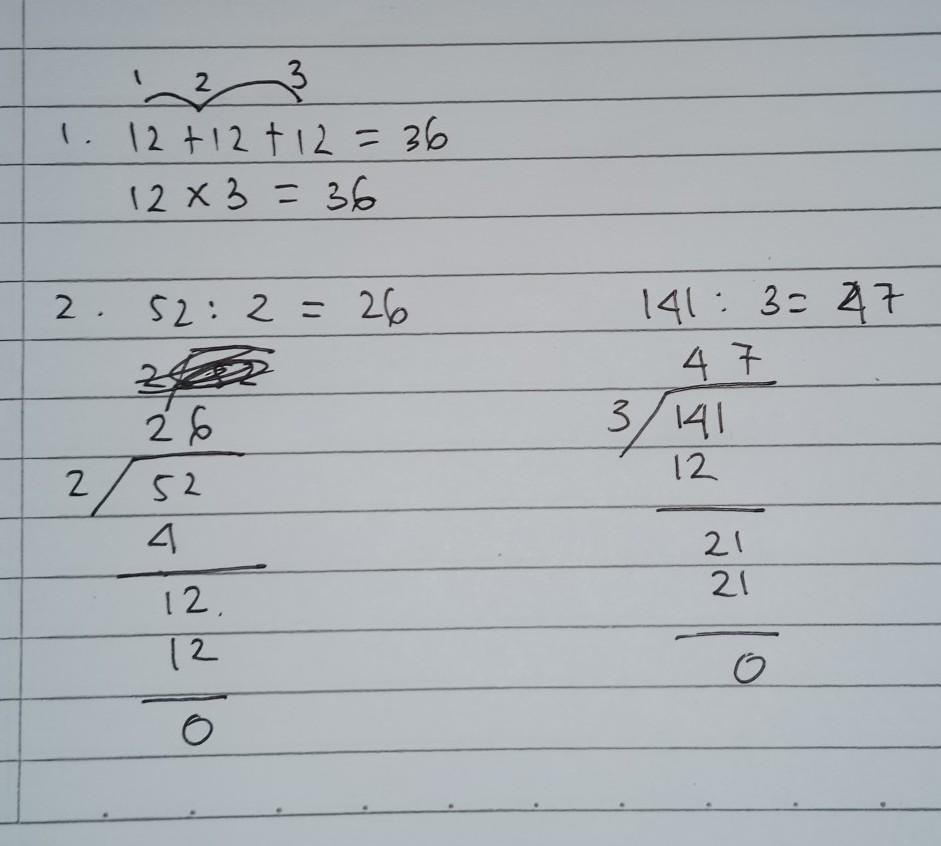 1 2 3
1. 12 + 12 + 12 = 36
12 x 3 = 36
2. 52 : 2 = 26
26
2 / 52
4
12.
12
0
141 : 3 = 47
47
3 / 141
12
21
21
0